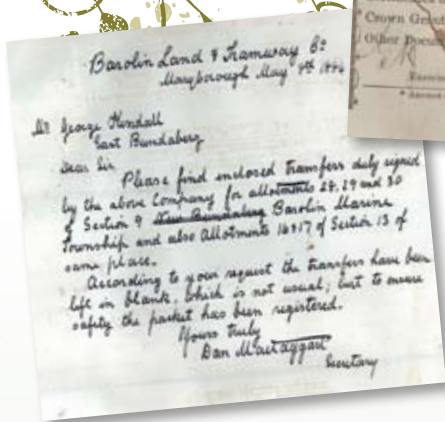 Crown Gra
Other Docu
Barolin Land & Tramway Co
Maryborough May 9th
Mr George Kendall
East Bundaberg
Dear Sir
Please find enclosed transfers duly signed
by the above Company for allotments 28, 29 and 30
of Section 9 New Bundaberg Barolin Marine
Township and also Allotments 16 & 17 of Section 13 of
same place.
According to your request the transfers have been
left in blank, which is not usual; but to ensure
safety the packet has been registered.
Yours truly
Dan Mactaggart
Secretary